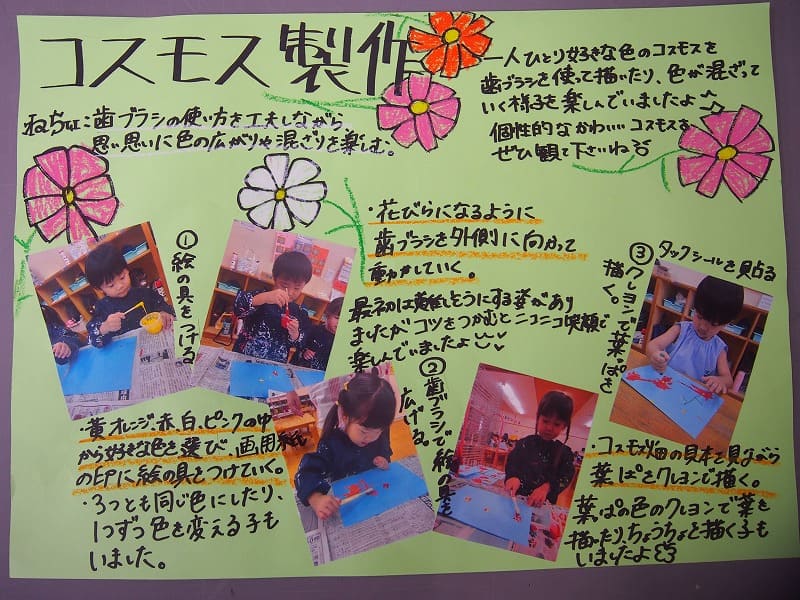 コスモス製作
ねらい：歯ブラシの使い方を工夫しながら、
思い思いに色の広がりや混ざりを楽しむ。
一人ひとり好きな色のコスモスを
歯ブラシを使って描いたり、色が混ざって
いく様子を楽しんでいましたよ♪
個性的なかわいいコスモスを
ぜひ観て下さいね
①絵の具をつける
・黄、オレンジ、赤、白、ピンクの中
から好きな色を選び、画用紙
の印に絵の具をつけていく。
・3つとも同じ色にしたり、
1つずつ色を変える子も
いました。
・花びらになるように
歯ブラシを外側に向かって
動かしていく。
最初は難しそうにする姿があり
ましたがコツをつかむとニコニコ笑顔で
楽しんでいましたよ
②歯ブラシで絵の具を
広げる。
③クレヨンで葉っぱを
描く。
タックシールを貼る
・コスモス畑の見本を見ながら
葉っぱをクレヨンで描く。
葉っぱの色のクレヨンで葉を
描いたり、ちょうちょを描く子も
いましたよ